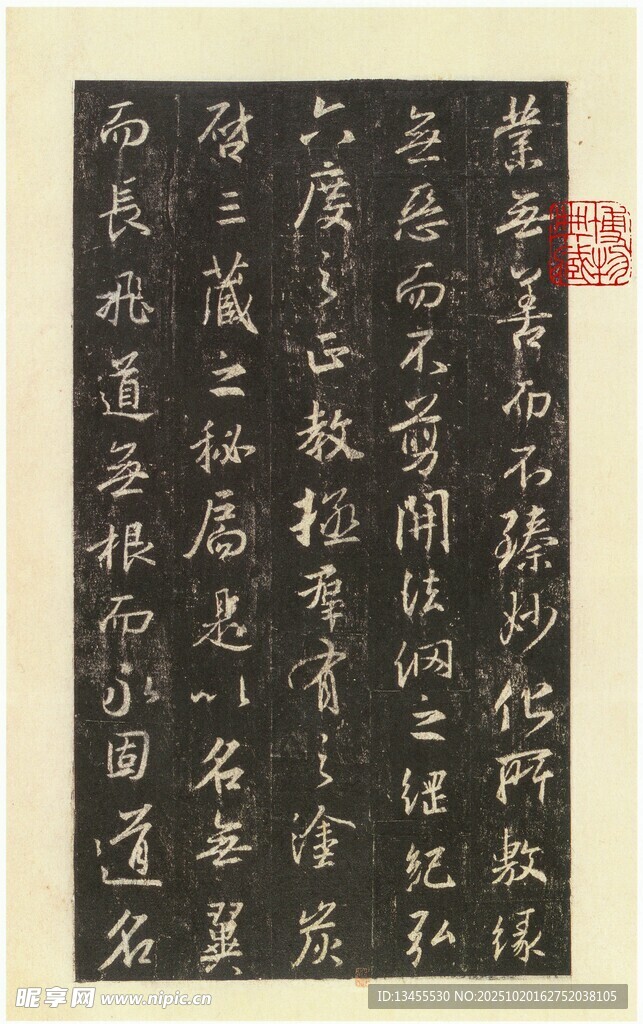 業無善而不臻妙化所敷緣
無惡而不剪開法網之綱紀弘
六度之正教拯群有之塗炭
啓三藏之秘扃是以名無翼
而長飛道無根而永固道名
昵享网 www.nipic.cn
ID:13455530 NO:20251020162752038105